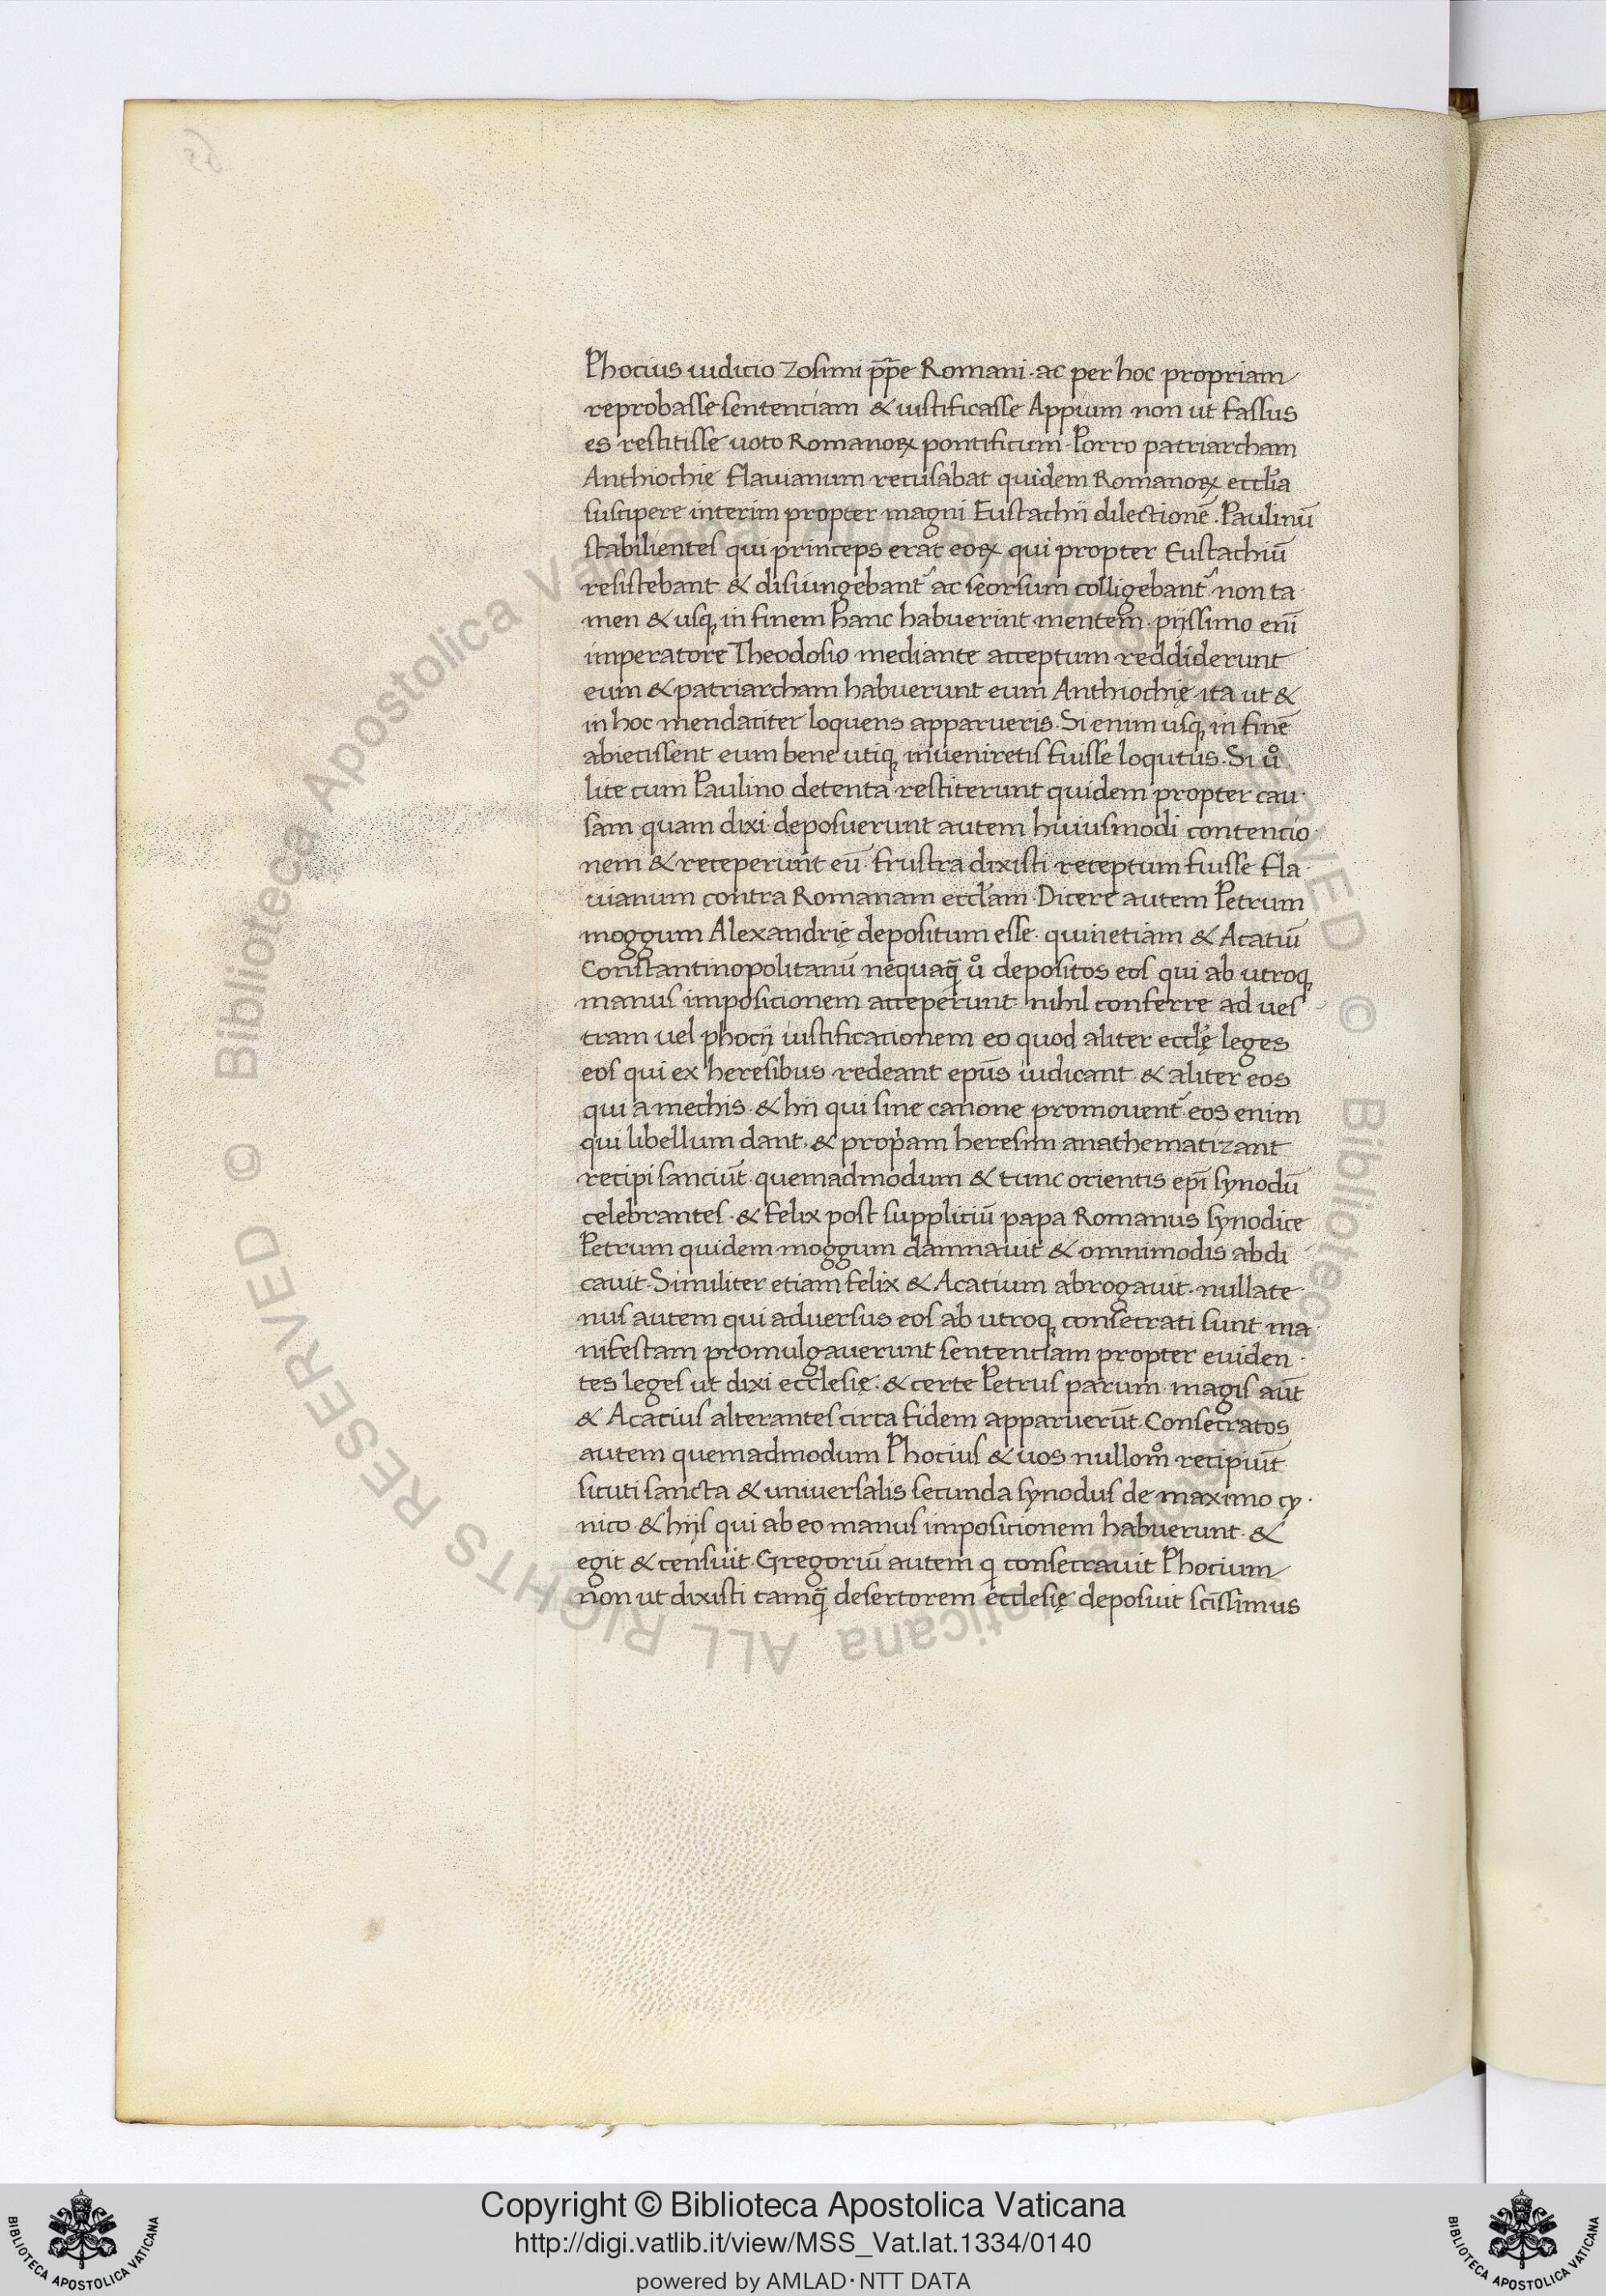 Phocius iudicio Zosimi pp̄e Romani · ac per hoc propriam
reprobasse sentenciam & iustificasse Appium non ut fassus
es restitisse uoto Romanoꝝ pontificum · Porro patriarcham
Anthiochie flauianum recusabat quidem Romanoꝝ eccl̄ia
suscipere interim propter magni Eustachii dilectionē · Paulinū
stabilientes qui princeps erat eoꝝ qui propter Eustachiū
resistebant & disiungebant᷑ ac seorsum colligebant᷑ non ta
men & usq; in finem hanc habuerint mentem · pijssimo eni̅
imperatore Theodosio mediante acceptum reddiderunt
eum & patriarcham habuerunt eum Anthiochię ita ut &
in hoc mendaciter loquens apparueris · Si enim usq; in finē
abiecissent eum bene utiq; inueniretis fuisse loqutus · Si uͦ
lite cum Paulino detenta restiterunt quidem propter cau
sam quam dixi deposuerunt autem huiusmodi contencio
nem & receperunt eū · frustra dixisti receptum fuisse fla
uianum contra Romanam eccl̄am · Dicere autem Petrum
moggum Alexandrię depositum esse · quinetiam & Acatiū
Constantinopolitanū nequaq̄ uͦ depositos eos qui ab utroq;
manus imposicionem acceperunt nihil conferre ad ues
tram uel phocij iustificationem eo quod aliter eccl̄ę leges
eos qui ex heresibus redeant ep̄us iudicant & aliter eos
qui a mechis · & hii qui sine canone promouent᷑ eos enim
qui libellum dant · & prop̄am heresim anathematizant
recipi sanciūt · quemadmodum & tunc orientis ep̄i synodū
celebrantes · & felix post suppliciū papa Romanus synodice
Petrum quidem moggum damnauit & omnimodis abdi
cauit · Similiter etiam felix & Acatium abrogauit · nullate
nus autem qui aduersus eos ab utroq; consecrati sunt ma
nifestam promulgauerunt sentenciam propter euiden
tes leges ut dixi ecclesię · & certe Petrus parum magis aūt
& Acatius alterantes circa fidem apparuerūt · Consecratos
autem quemadmodum Phocius & uos nullomͦ recipiūt
sicuti sancta & uniuersalis secunda synodus de maximo cy
nico & hijs qui ab eo manus imposicionem habuerunt · &
egit & censuit · Gregoriū autem q̣ consecrauit Phocium
non ut dixisti tamq̄ desertorem ecclesię deposuit sc̄issimus
Copyright © Biblioteca Apostolica Vaticana
http://digi.vatlib.it/view/MSS_Vat.lat.1334/0140
powered by AMLAD·NTT DATA
BIBLIOTECA APOSTOLICA VATICANA
BIBLIOTECA APOSTOLICA VATICANA